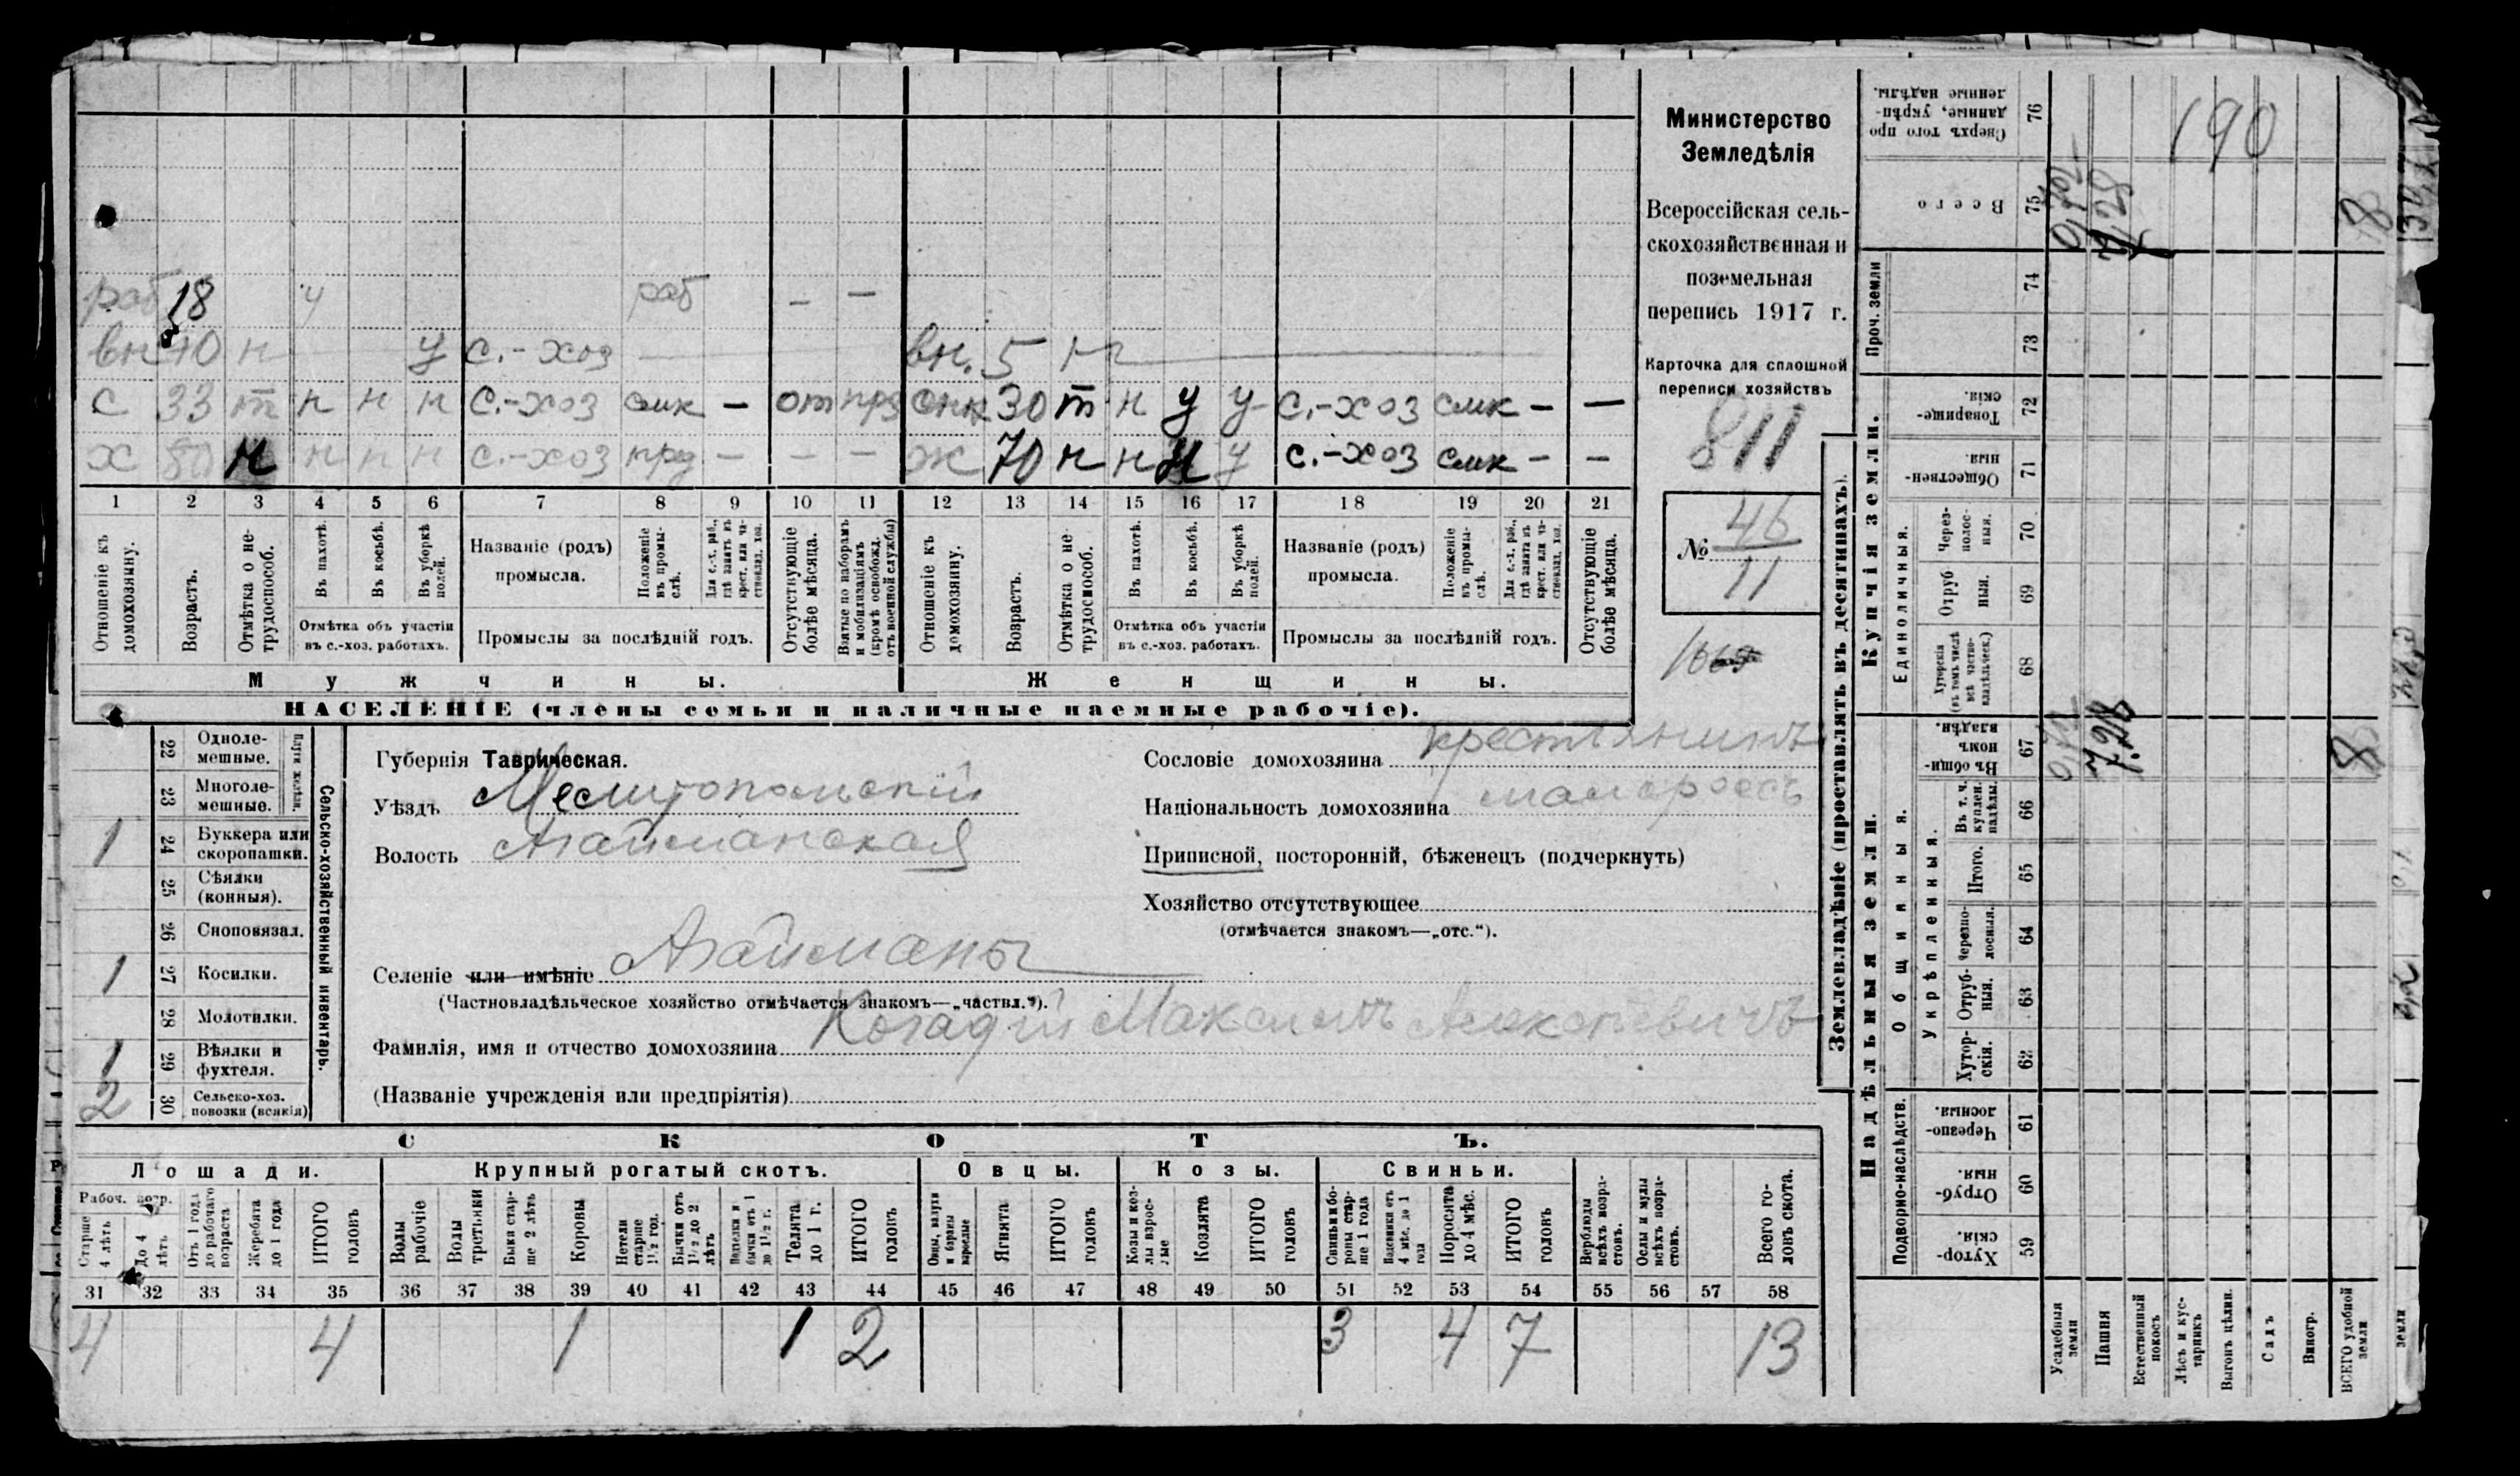 раб 18 ч раб — —
вн 10 н у с.-хоз вн. 5 н
с 33 т н н н с.-хоз смк — от прз снк 30 т н у у с.-хоз смк — —
х 80 н н н н с.-хоз прд — — — ж 70 н н н у с.-хоз смк — —
1 2 3 4 5 6 7 8 9 10 11 12 13 14 15 16 17 18 19 20 21
Отношеніе къ домохозяину.
Возрастъ.
Отмѣтка о нетрудоспособ.
Въ пахотѣ.
Въ косьбѣ.
Въ уборкѣ полей.
Отмѣтка объ участіи
въ с.-хоз. работахъ.
Названіе (родъ)
промысла.
Положеніе въ промыслѣ.
Для с.-х. раб., гдѣ занятъ въ крест. или частновлад. хоз.
Промыслы за послѣдній годъ.
Отсутствующіе болѣе мѣсяца.
Взятые по наборамъ и мобилизаціямъ (кромѣ освобожд. отъ военной службы)
Отношеніе къ домохозяину.
Возрастъ.
Отмѣтка о нетрудоспособ.
Въ пахотѣ.
Въ косьбѣ.
Въ уборкѣ полей.
Отмѣтка объ участіи
въ с.-хоз. работахъ.
Названіе (родъ)
промысла.
Положеніе въ промыслѣ.
Для с.-х. раб., гдѣ занята въ крест. или частновлад. хоз.
Промыслы за послѣдній годъ.
Отсутствующіе болѣе мѣсяца.
Мужчины. Женщины.
НАСЕЛЕНІЕ (члены семьи и наличные наемные рабочіе).
Министерство
Земледѣлія
Всероссійская сель-
скохозяйственная и
поземельная
перепись 1917 г.
Карточка для сплошной
переписи хозяйствъ
811
№ 46
11
22 Однолемешные.
23 Многолемешные.
1 24 Буккера или скоропашки.
25 Сѣялки (конныя).
26 Сноповязал.
1 27 Косилки.
28 Молотилки.
1 29 Вѣялки и фухтеля.
2 30 Сельско-хоз. повозки (всякія)
Сельско-хозяйственный инвентарь.
Губернія Таврическая.
Уѣздъ Мелитопольскій
Волость Агайманская
Селеніе или имѣніе Агайманы
(Частновладѣльческое хозяйство отмѣчается знакомъ—„частвл.“).
Фамилія, имя и отчество домохозяина Максимъ
(Названіе учрежденія или предпріятія)
Сословіе домохозяина крестьянинъ
Національность домохозяина малороссъ
Приписной, посторонній, бѣженецъ (подчеркнуть)
Хозяйство отсутствующее
(отмѣчается знакомъ—„отс.“).
СКОТЪ.
Лошади. Крупный рогатый скотъ. Овцы. Козы. Свиньи.
Рабоч. возр.
Старше 4 лѣтъ
До 4 лѣтъ
Отъ 1 года до рабочаго возраста
Жеребята до 1 года
ИТОГО головъ
Волы рабочіе
Волы третьяки
Быки старше 2 лѣтъ
Коровы
Нетели старше 1½ год.
Бычки отъ 1½ до 2 лѣтъ
Подтелки и бычки отъ 1 до 1½ г.
Телята до 1 г.
ИТОГО головъ
Овцы, валухи и бараны взрослые
Ягнята
ИТОГО головъ
Козы и козлы взрослые
Козлята
ИТОГО головъ
Свиньи и боровы старше 1 года
Подсвинки отъ 4 мѣс. до 1 года
Поросята до 4 мѣс.
ИТОГО головъ
Верблюды всѣхъ возрастовъ.
Ослы и мулы всѣхъ возрастовъ.
Всего головъ скота.
31 32 33 34 35 36 37 38 39 40 41 42 43 44 45 46 47 48 49 50 51 52 53 54 55 56 57 58
4 4 1 1 2 3 4 7 13
Землевладѣніе (проставлять въ десятинахъ).
Купчія земли.
Надѣльныя земли.
Проч. земли
Единоличныя.
Общинныя.
Укрѣпленныя.
Подворно-наслѣдств.
76 Сверхъ того проданные, укрѣпленные надѣлы. 190
75 Всего 7,28 8
74
73
72 Товарищескія.
71 Общественныя.
70 Черезполосныя.
69 Отрубныя.
68 Хуторскія (въ томъ числѣ всѣ частновладѣльческ.)
67 Въ общинномъ владѣн. 7.28 8
66 Въ т. ч. куплен. надѣлы.
65 Итого.
64 Черезполосныя.
63 Отрубныя.
62 Хуторскія.
61 Черезполосныя.
60 Отрубныя.
59 Хуторскія.
Усадебныя земли
Пашня
Естественный покосъ
Лѣсъ и кустарникъ
Выгонъ цѣлин.
Садъ
Виногр.
ВСЕГО удобной земли
земли